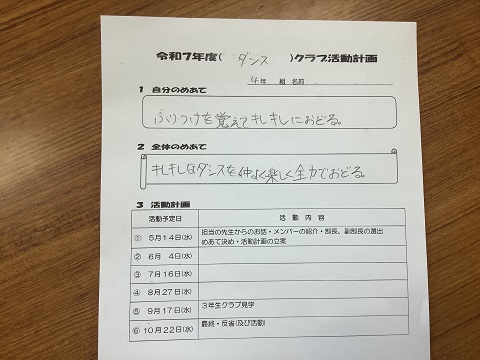 令和7年度( ダンス )クラブ活動計画
4年 組 名前
1 自分のめあて
ふりつけを覚えてキレキレにおどる。
2 全体のめあて
キレキレなダンスを仲よく楽しく全力でおどる。
3 活動計画
活動予定日 活動内容
① 5月14日(水) 担当の先生からのお話・メンバーの紹介・部長、副部長の選出
めあて決め・活動計画の立案
② 6月 4日(水)
③ 7月16日(水)
④ 8月27日(水)
⑤ 9月17日(水) 3年生クラブ見学
⑥ 10月22日(水) 最終・反省(及び活動)